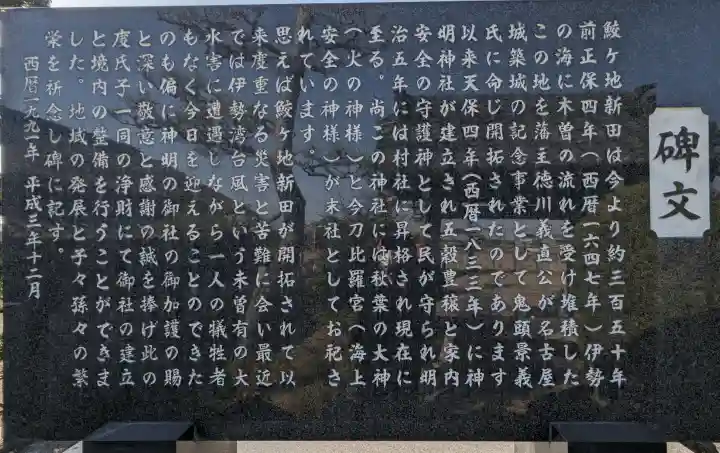 碑文
鮫ヶ地新田は今より約三百五十年
前正保四年(西暦一六四七年)伊勢
の海に木曽の流れを受け堆積した
この地を藩主徳川義直公が名古屋
城築城の記念事業として鬼頭景義
氏に命じ開拓されたのであります
以来天保四年(西暦一八三三年)に神
明神社が建立され五穀豊穣と家内
安全の守護神として民が守られ明
治五年には村社に昇格され現在に
至る。尚この神社には秋葉の大神
(火の神様)と今刀比羅宮(海上
安全の神様)が末社としてお祀さ
れています。
思えば鮫ヶ地新田が開拓されて以
来度重なる災害と苦難に会い最近
では伊勢湾台風という未曽有の大
水害に遭遇しながら一人の犠牲者
もなく今日を迎えることのできた
のも偏に神明の御社の御加護の賜
と深い敬意と感謝の誠を捧げ此の
度氏子一同の浄財にて御社の建立
と境内の整備を行うことができま
した。地域の発展と子々孫々の繁
栄を祈念し碑に記す。
西暦一九九一年 平成三年十二月